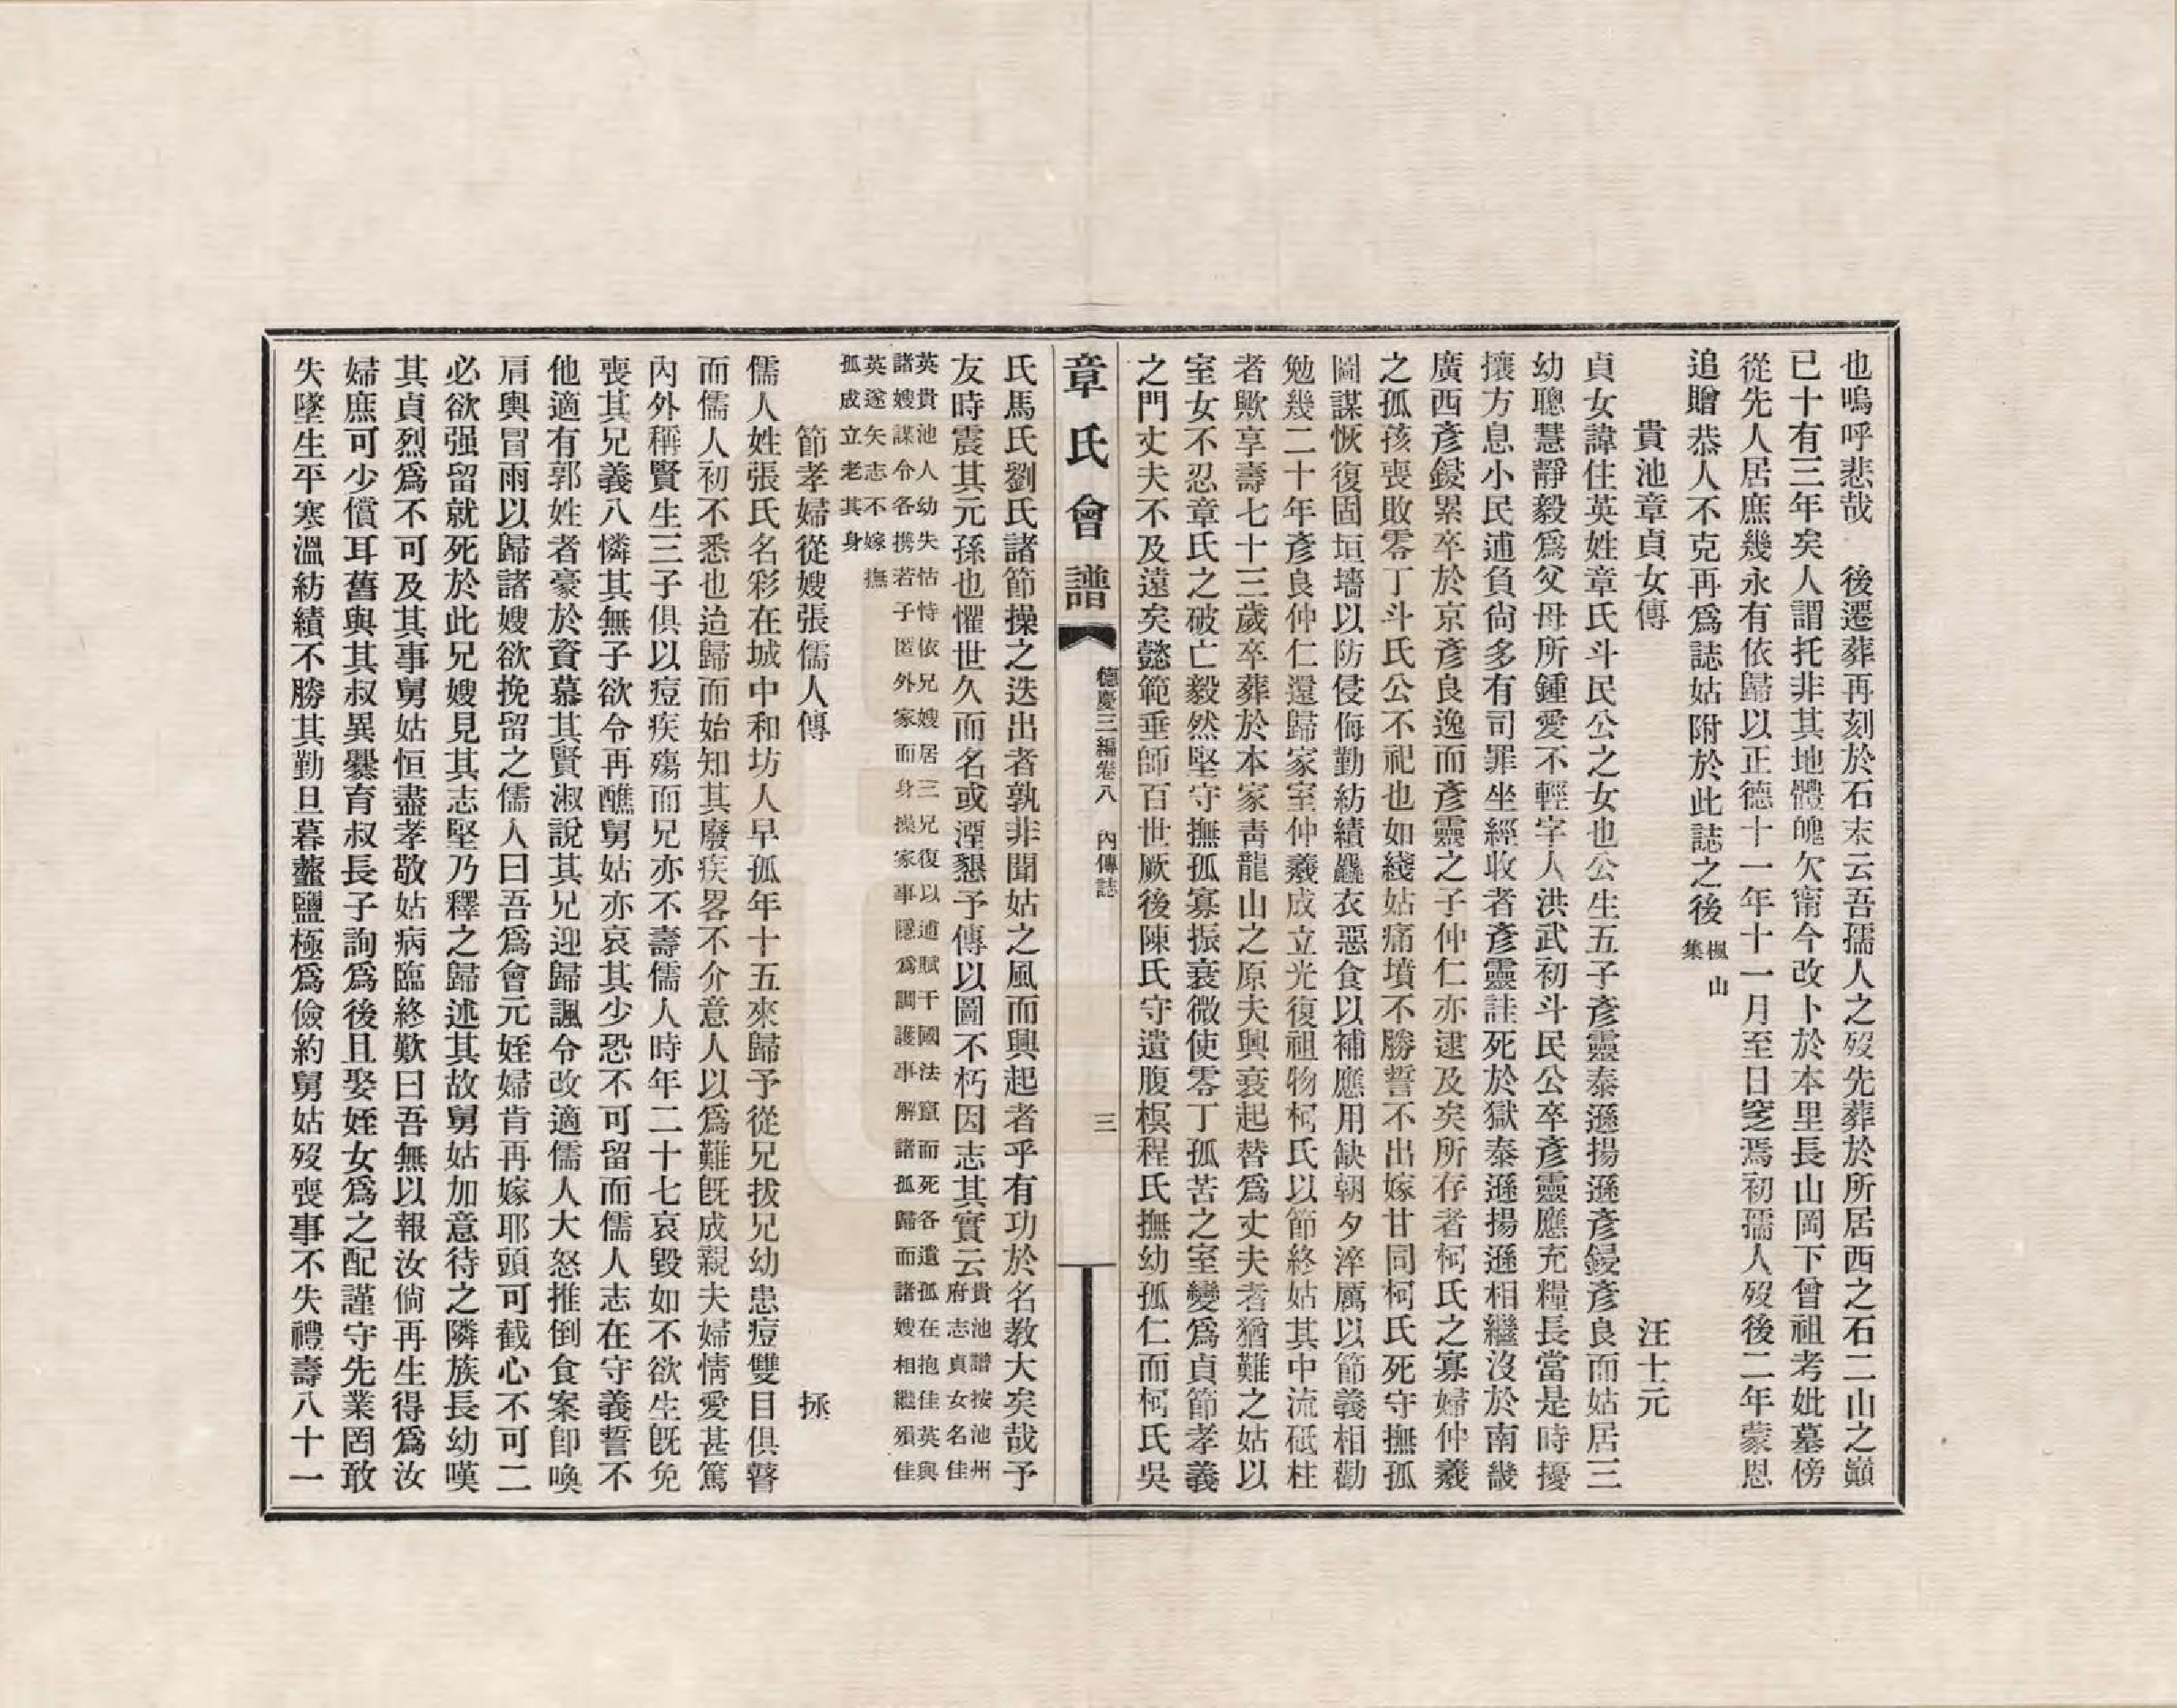 也嗚呼悲哉　後遷葬再刻於石末云吾孺人之歿先葬於所居西之石二山之巔
已十有三年矣人謂托非其地體魄欠甯今改卜於本里長山岡下曾祖考妣墓傍
從先人居庶幾永有依歸以正德十一年十一月至日窆焉初孺人歿後二年蒙恩
追贈恭人不克再爲誌姑附於此誌之後楓山集
貴池章貞女傳　汪士元
貞女諱住英姓章氏斗民公之女也公生五子彥靈泰遜揚遜彥鋟彥良而姑居三
幼聰慧靜毅爲父母所鍾愛不輕字人洪武初斗民公卒彥靈應充糧長當是時擾
攘方息小民逋負尙多有司罪坐經收者彥靈註死於獄泰遜揚遜相繼沒於南畿
廣西彥鋟累卒於京彥良逸而彥靈之子仲仁亦逮及矣所存者柯氏之寡婦仲羲
之孤孩喪敗零丁斗氏公不祀也如綫姑痛墳不勝誓不出嫁甘同柯氏死守撫孤
圖謀恢復固垣墻以防侵侮勤紡績麤衣惡食以補應用缺朝夕淬厲以節義相勸
勉幾二十年彥良仲仁還歸家室仲羲成立光復祖物柯氏以節終姑其中流砥柱
者歟享壽七十三歲卒葬於本家靑龍山之原夫興衰起替爲丈夫者猶難之姑以
室女不忍章氏之破亡毅然堅守撫孤寡振衰微使零丁孤苦之室變爲貞節孝義
之門丈夫不及遠矣懿範垂師百世厥後陳氏守遺腹棋程氏撫幼孤仁而柯氏吳
章氏會譜　德慶三編卷八　內傳誌　三
氏馬氏劉氏諸節操之迭出者孰非聞姑之風而興起者乎有功於名敎大矣哉予
友時震其元孫也懼世久而名或湮懇予傳以圖不朽因志其實云貴池譜按池州府志貞女名佳
英貴池人幼失怙恃依兄嫂居三兄復以逋賦干國法竄而死各遺孤在抱佳英與
諸嫂謀令各携若子匿外家而身操家事隱爲調護事解諸孤歸而諸嫂相繼殞佳
英遂矢志不嫁撫
孤成立老其身
節孝婦從嫂張儒人傳　拯
儒人姓張氏名彩在城中和坊人早孤年十五來歸予從兄拔兄幼患痘雙目俱瞽
而儒人初不悉也迨歸而始知其廢疾畧不介意人以爲難旣成親夫婦情愛甚篤
內外稱賢生三子俱以痘疾殤而兄亦不壽儒人時年二十七哀毀如不欲生旣免
喪其兄義八憐其無子欲令再醮舅姑亦哀其少恐不可留而儒人志在守義誓不
他適有郭姓者豪於資慕其賢淑說其兄迎歸諷令改適儒人大怒推倒食案卽喚
肩輿冒雨以歸諸嫂欲挽留之儒人曰吾爲會元姪婦肯再嫁耶頭可截心不可二
必欲强留就死於此兄嫂見其志堅乃釋之歸述其故舅姑加意待之隣族長幼嘆
其貞烈爲不可及其事舅姑恒盡孝敬姑病臨終歎曰吾無以報汝倘再生得爲汝
婦庶可少償耳舊與其叔異爨育叔長子詢爲後且娶姪女爲之配謹守先業罔敢
失墜生平寒溫紡績不勝其勤旦暮虀鹽極爲儉約舅姑歿喪事不失禮壽八十一